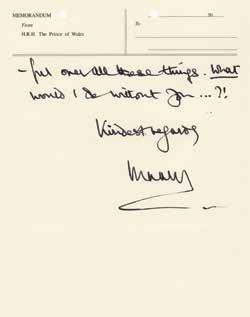 MEMORANDUM
From
H.R.H. The Prince of Wales
To
19
- for over all these things. What
would I do without you ...?!
Kindest regards